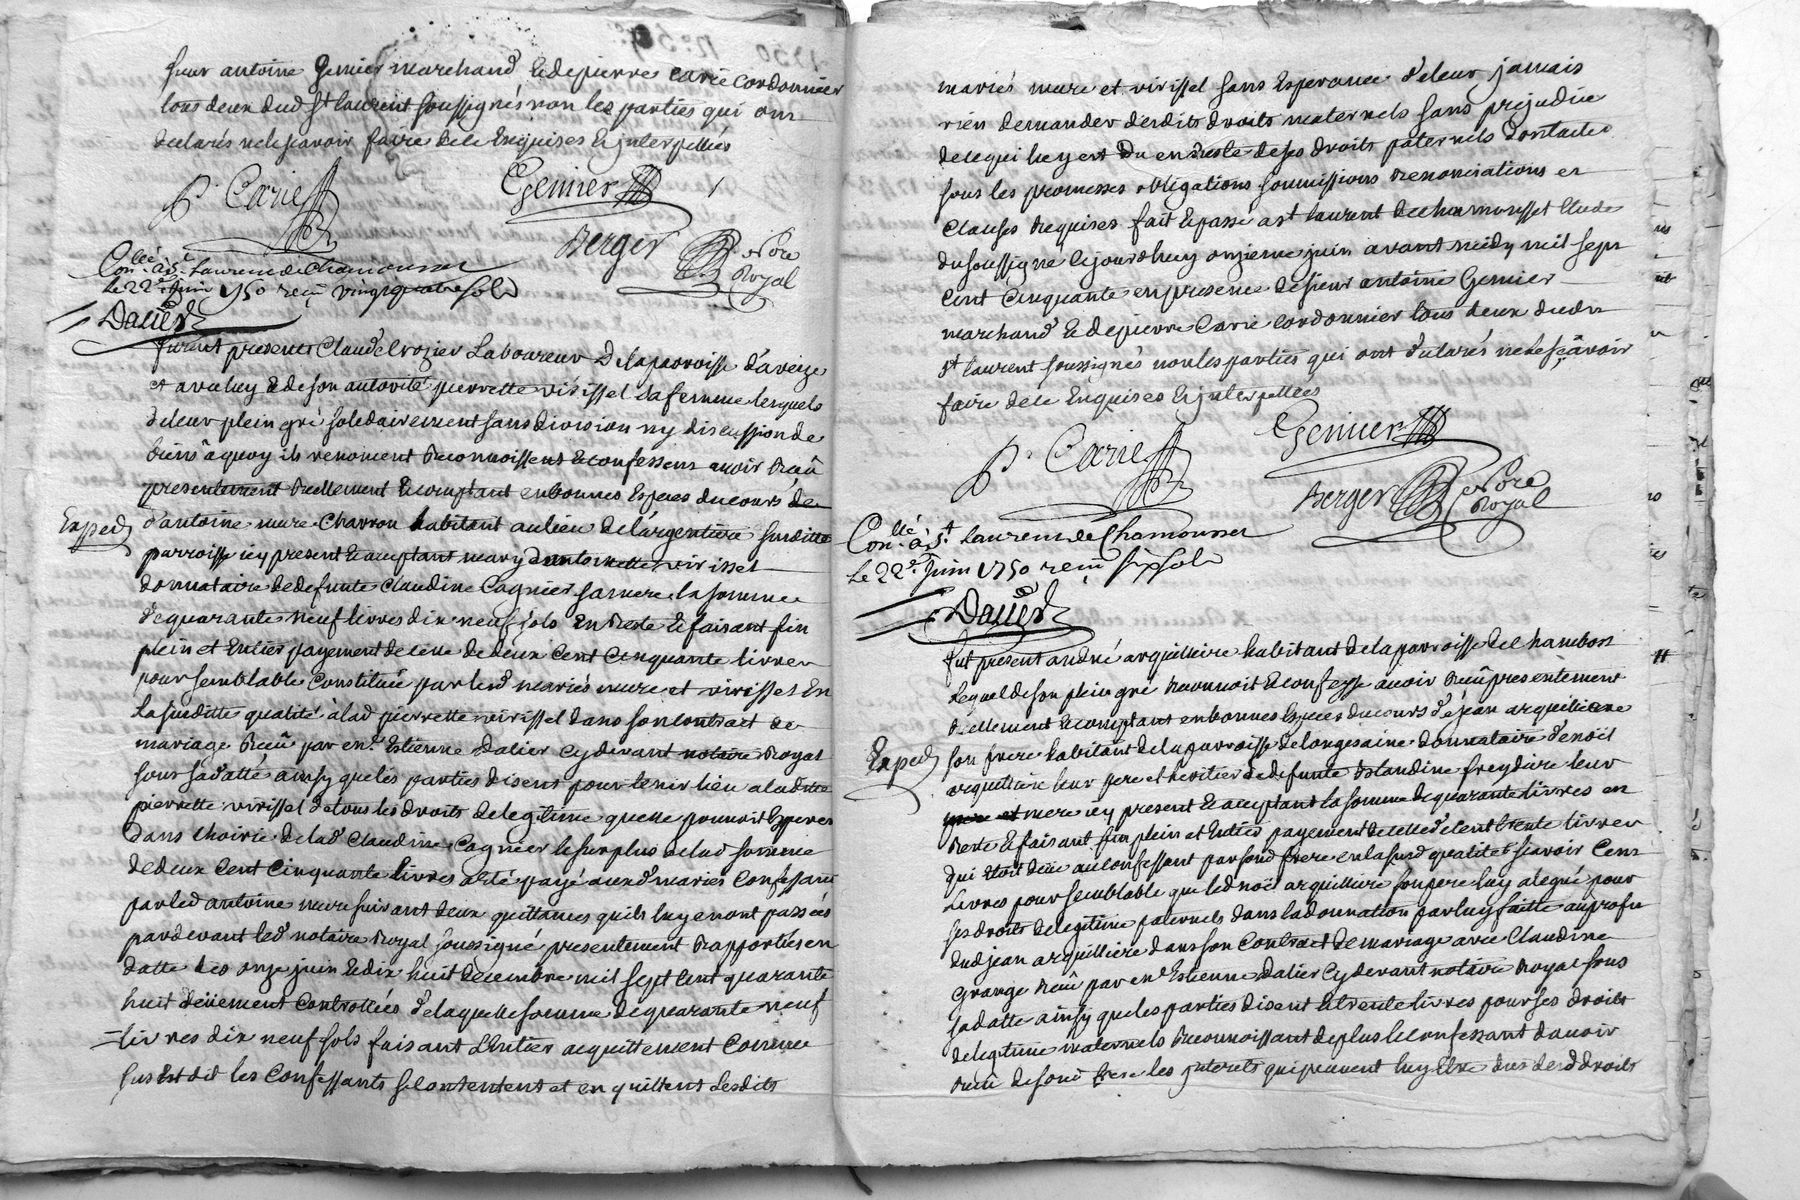 sieur antoine Gemier marchand Et de pierre Carie Cordonnier
tous deux dud St laurent soussignés non les parties qui ont
declarés ne le sçavoir faire de ce Enquises Et jnterpellées
P. Carie
Gemier
Berger Nore Royal
Collé
Con. à St. Laurent de Chamousset
le 22e. Juin 1750 reçu vingtquatre sols
Daüer
furent presents Claude Crozier Laboureur de la parroisse d'aveize
et avec luy Et de son autorité pierrette virissel sa femme lesquels
de leur plein gré solidairement sans division ny discussion de
biens à quoy ils renoncent Reconnoissent Et confessent avoir Reçû
presentement Reellement Et comptant en bonnes Especes du cours de
Exped
d'antoine mure Charron habitant au lieu de l'argentiere susditte
parroisse icy present Et acceptant mary d'antoinette virissel
donnataire de defunte Claudine Cagnier sa mere la somme
de quarante neuf livres dix neuf sols En Reste Et faisant fin
plein et Entier payement de celle de deux Cent Cinquante livres
pour semblable Constituée par lesd mariés mure et virissel En
la susditte qualité à lad pierrette virissel dans son contract de
mariage Reçû par me. Estienne Dalier Cy devant notaire Royal
sous sa datte ainsy que les parties disent pour tenir lieu a laditte
pierrette virissel de tous les droits de legitime quelle pouvoit Esperer
Dans lhoirie de lad Claudine Cagnier le surplus de lad somme
de deux Cent Cinquante livres a été payé auxd mariés Confessants
par led antoine mure suivant deux quittances quils luy en ont passées
pardevant led notaire Royal soussigné presentement Rapportées en
datte des onze juin Et dix huit decembre mil sept Cent quarante
huit dëüement Controllées de laquelle somme de quarante neuf
livres dix neuf sols faisant l'Entier acquittement Comme
sus Est dit les Confessants se contentent et en quittent lesdits
mariés mure et virissel sans Esperance d'eleur jamais
rien demander desdits droits maternels sans prejudice
de ce qui luy est du en Reste de ses droits paternels Dont acte
sous les promesses obligations soumissions Renonciations et
Clauses Requises fait Et passé a St laurent de chamousset Etude
du soussigné Cejourdhuy onzieme juin avant midy mil sept
Cent Cinquante en presence de sieur antoine Gemier
marchand Et de pierre Carie Cordonnier tous deux dudit
St laurent soussignés non les parties qui ont declarés ne le sçavoir
faire de ce Enquises Et jnterpellées
P. Carie
Gemier
Berger Nore Royal
Collé
Con. à St. Laurent de Chamousset
Le 22e. Juin 1750 reçu six sols
Daüer
fut present andré arquilliere habitant de la parroisse de Chambost
Lequel de son plein gré Reconnoit Et confesse avoir Reçû presentement
Reellement Et comptant en bonnes Especes du cours de jean arquilliere
Exped
son frere habitant de la parroisse de longesaine donnataire de noël
arquilliere leur pere et heritier de defunte blandine freydiere leur
mere icy present Et acceptant la somme de quarante livres en
Reste Et faisant fin plein et Entier payement de celle de Cent trente livres
qui Etoit dëüe au Confessant par sond frere en la susd qualité sçavoir Cent
Livres pour semblable que led noël arquilliere son pere luy a legué pour
ses droits de legitime paternels dans la donnation par luy faitte au profit
dud jean arquilliere dans son Contract de mariage avec Claudine
Grange Reçû par me Estienne Dalier Cy devant notaire Royal sous
sa datte ainsy que les parties disent Et trente livres pour ses droits
de legitime maternels Reconnoissant de plus le Confessant d'avoir
Reçû de sond frere les jnterets qui peuvent luy être dus desd droits